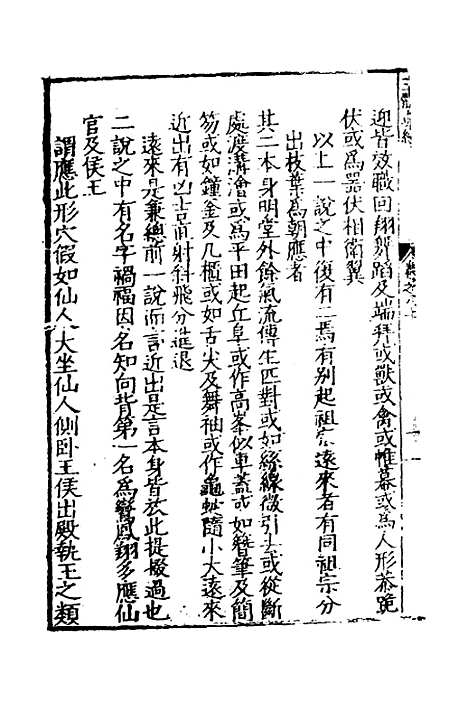 迎皆效職回翔舞蹈及端拜或獸或禽或帷幕或爲人形恭跪
伏或爲噐伏相衛翼
以上一說之中復有二焉有别起祖宗遠來者有同祖宗分
出枝葉爲朝應者
其二本身明堂外餘氣流傳生匹對或如絲線微引去或從斷
處渡溝澮或爲平田起丘阜或作高峯似車蓋或如簪筆及簡
笏或如鐘金及几櫃或如舌尖及舞袖或作龜蛇隨小大遠來
近出有凶吉直射斜飛分進退
遠來是兼總前一說而言近出是言本身皆放此提撥過也
二說之中有名字禍福因名知向背第一名爲鸞鳳翔多應仙
官及侯王
謂應此形穴假如仙人大坐仙人側卧王侯出殿執王之類